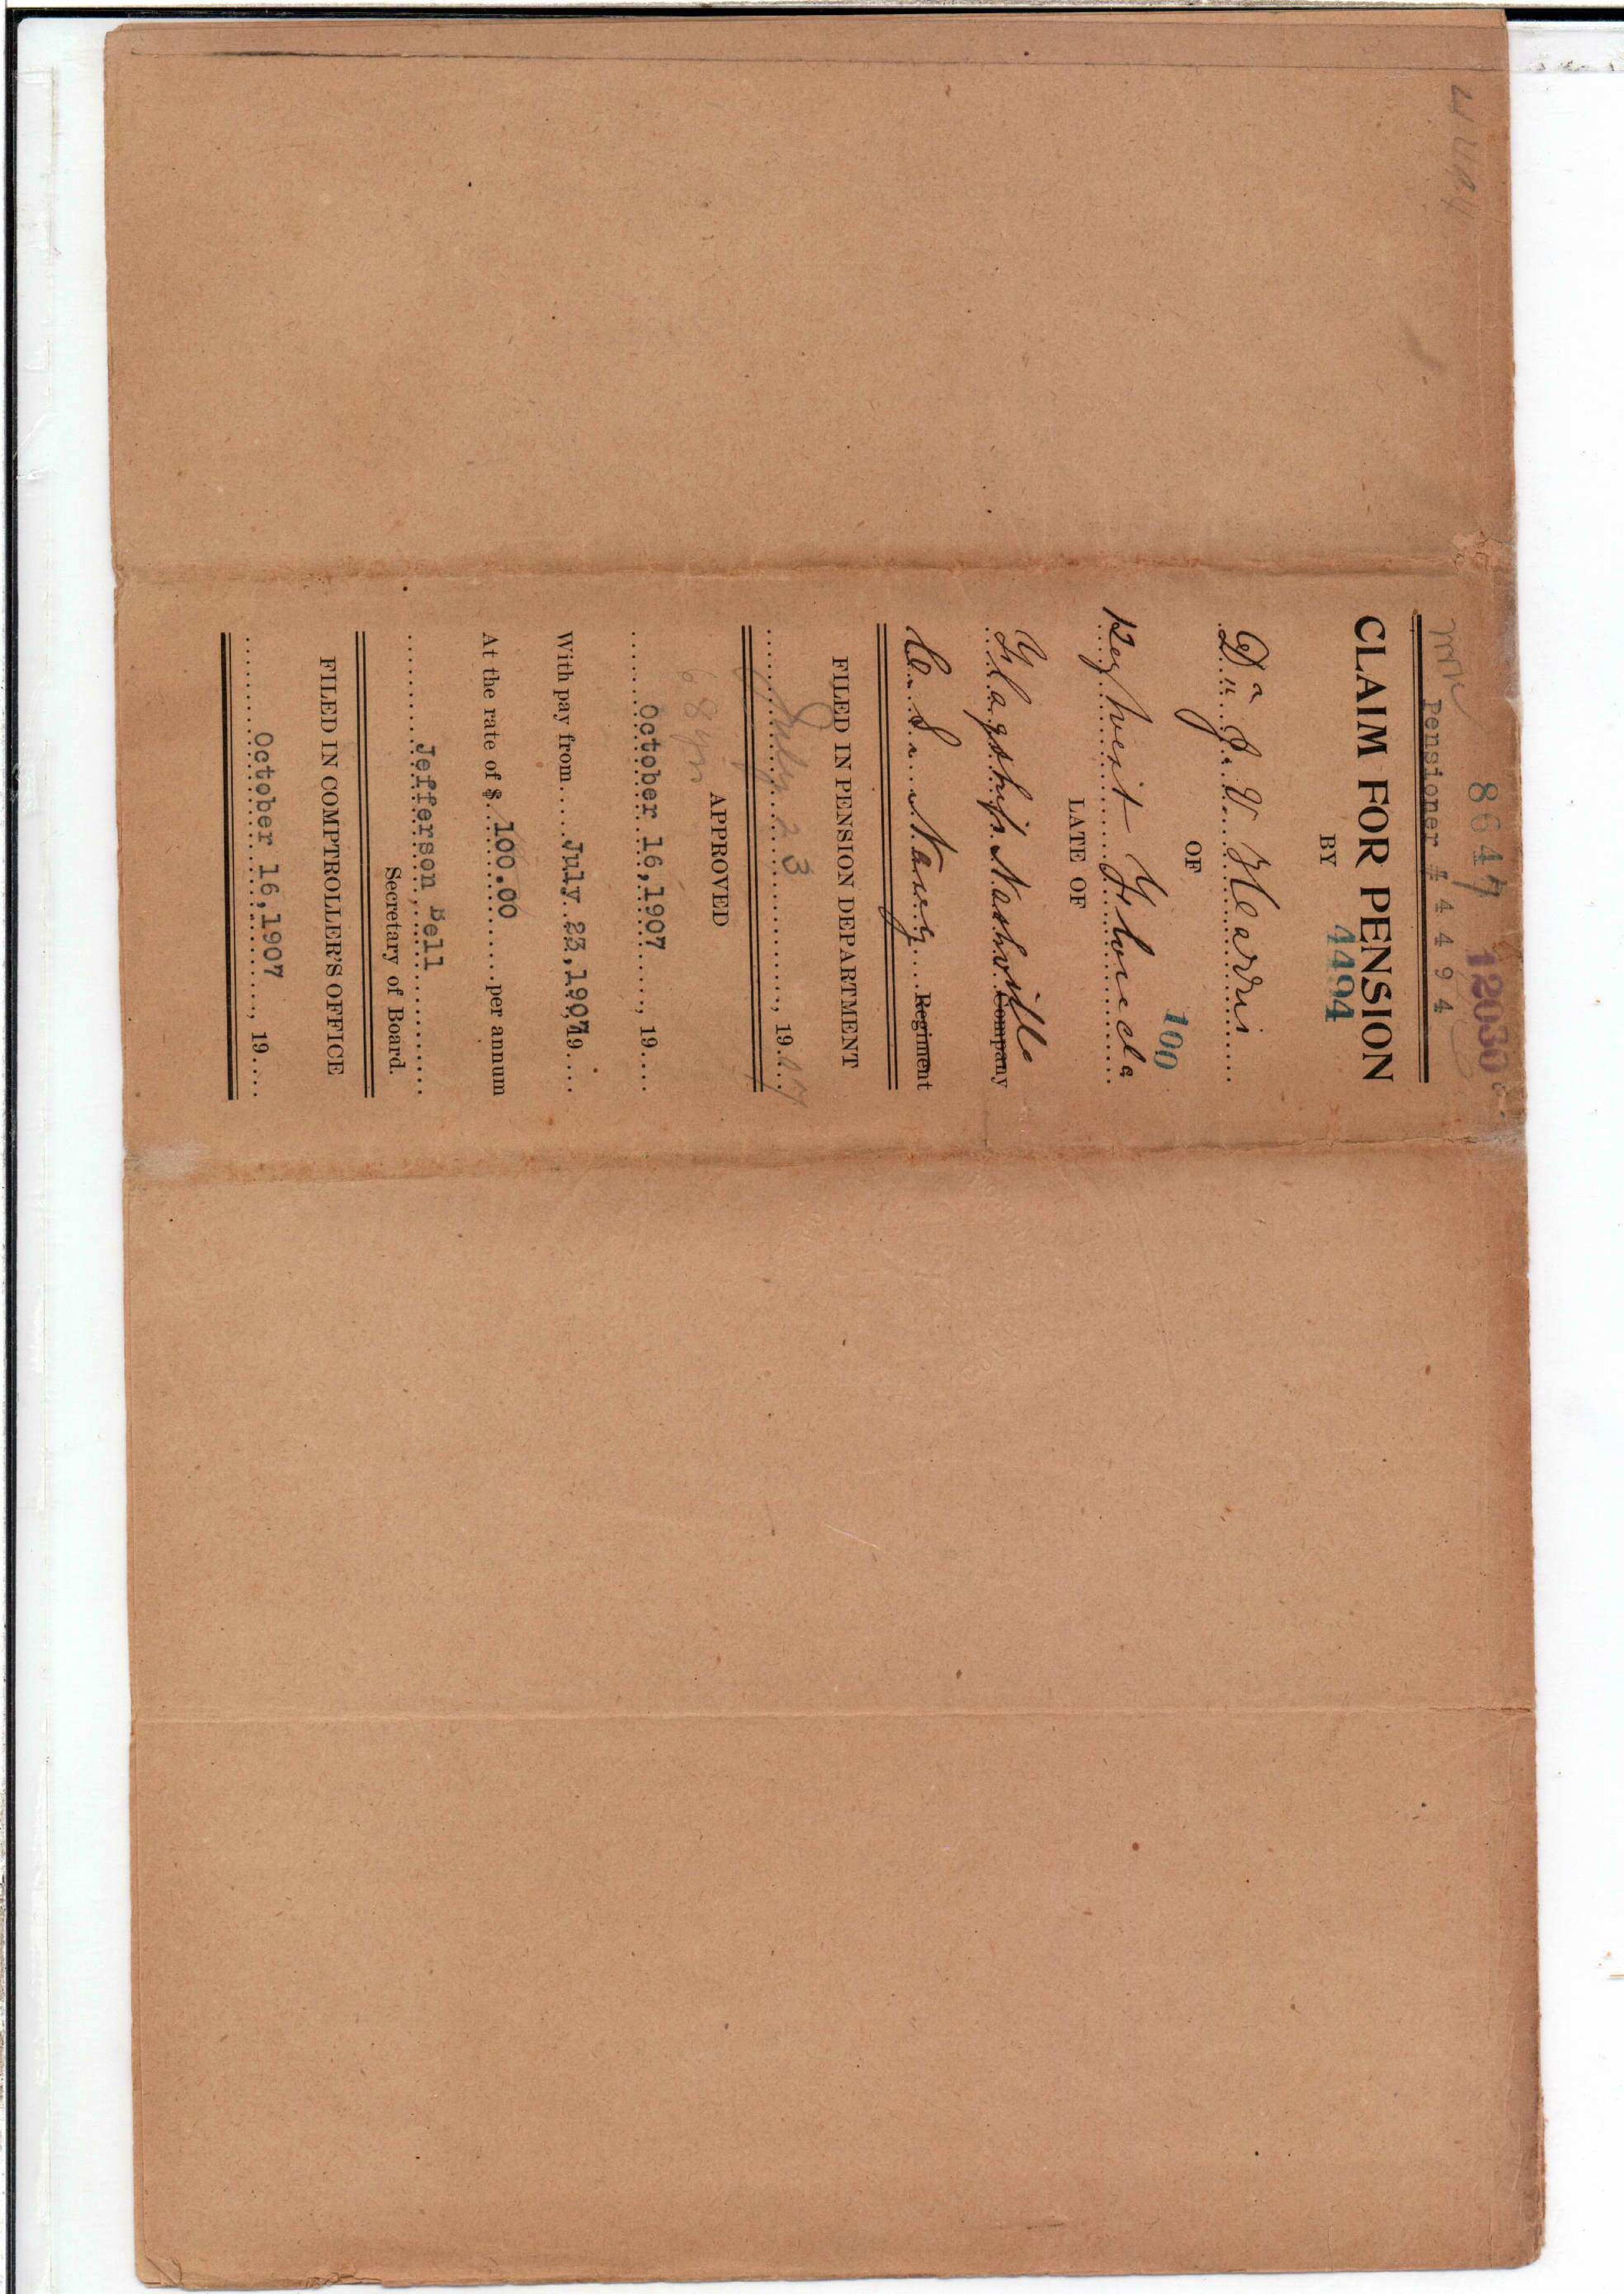 8647 12030
Pensioner # 4494
CLAIM FOR PENSION
BY 4494
J. V. Harris
OF
100
Key West Florida
LATE OF
Flagship Nashville Company
C. S. Navy Regiment
FILED IN PENSION DEPARTMENT
July 23, 1907
APPROVED
68 yrs
October 16, 1907, 19
With pay from July 23, 1907, 19
At the rate of $ 100.00 per annum
Jefferson Bell
Secretary of Board.
FILED IN COMPTROLLER'S OFFICE
October 16, 1907, 19